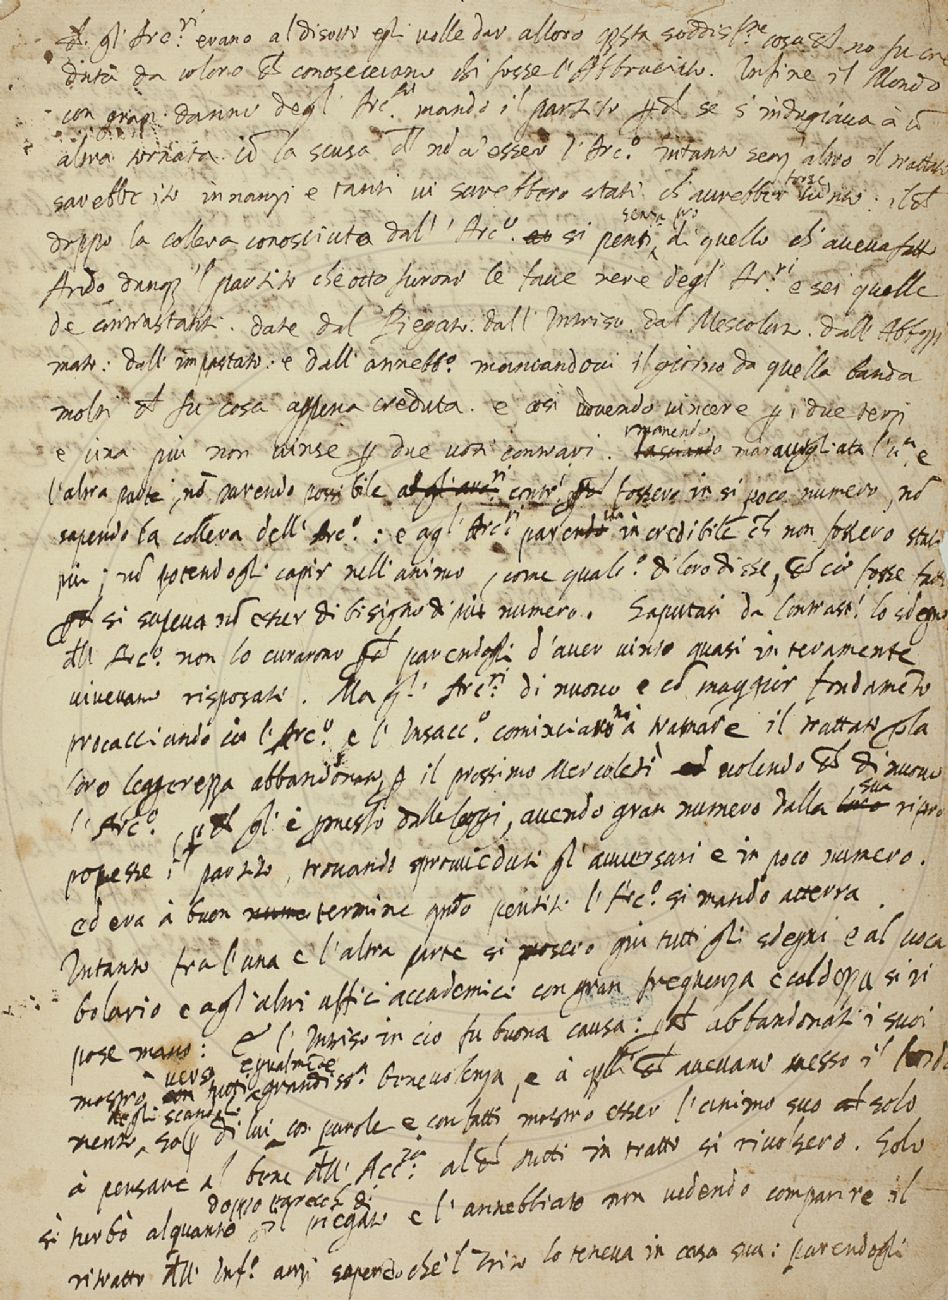 gl' Arc.ri erano al disotto egli volle dar alloro qsta soddisf.ne cosa no fu cre
duta da coloro conoscevano chi fosse l'Abbruciato. Infine il Mondo
con gran danno degl' Arc.ri mandò il partito se s'indugiava à
altra tornata la scusa nō v'esser l'Arc.º intanto senz'altro il trattato
sarebbe ito innanzi e tanti vi sarebbero stati ch'avrebber forse vinto:
doppo la collera conosciuta dall' Arc.º si pentì senza pro di quello ch'aveva fatto
Andò dunqz 'l partito che otto furono le fave nere degl' Ar.ri e sei quelle
de contrastanti. date dal Riegato. dall' Intriso. dal Mescolato. dall' Abboz
mato: dall' impastato: e dall' annebb.º mancandovi il giorno da quella banda
molti fu cosa appena creduta. e così dovendo vincere p i due terzi
e una più non vinse p due voti contrari. rimanendo maravigliata l'una e
l'altra parte, nō parendo possibile fossero in sì poco numero, nō
sapendo la collera dell' Arc.º: e agl' Arc.ri incredibile non fossero stati
più; nō potendogli capir nell'animo, come qualc.º di loro disse, ciò fosse fatto
si sapeva nō esser di bisogno di più numero. Saputasi da Contrast.i lo sdegno
dll' Arc.º non lo curarono parendogli d'aver vinto quasi interamente
vivevano risposati. Ma gl' Arc.ri di nuovo e cō maggior fondamēto
procacciando l'Arc.º e l'Insacc.º cominciarono à tramare il trattato
loro leggerezza abbandonato, p il prossimo Mercoledì volendo di nuovo
l'Arc.º, gl'è pmesso dalle leggi, avendo gran numero dalla sua ripro
popesse il partito, trovando sprovveduti gl'avversari e in poco numero.
ed era à buon termine qndo pentito l'Arc.º si mandò atterra.
Intanto fra l'una e l'altra parte si posero giù tutti gli sdegni e al voca
bolario e agl'altri affici accademici con gran frequenza e caldezza si ri
pose mano: e l'Intriso in ciò fu buona causa: abbandonati i suoi
mostrò verso tutti egualmēte grandiss.a benevolenza, e à qlli avevano messo il
mento degli scandoli sop di lui con parole e con fatti mostrò esser l'animo suo solo
à pensare al bene dll' Acc.a al tutti in tratto si rivolsero. Solo
si turbò alquanto doppo parecch. dì il piegato e l'annebbiato non vedendo comparire il
ritratto dll' Inf.º anzi sapendo che 'l Trito lo teneva in casa sua: parendogli